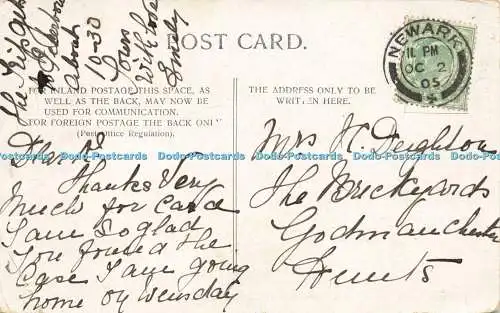 POST CARD.
FOR INLAND POSTAGE THIS SPACE, AS
WELL AS THE BACK, MAY NOW BE
USED FOR COMMUNICATION.
FOR FOREIGN POSTAGE THE BACK ONLY
(Post Office Regulation).
THE ADDRESS ONLY TO BE
WRITTEN HERE.
NEWARK
11 PM
OC 2
05
Dear
Thanks very
much for card
I am so glad
you found the
Case I am going
home on wensday
the
about
10-30
Love
with love
Emily
Mrs H. Deighton
The Brickyards
Godmanchester
Hunts
Dodo-Postcards Dodo-Postcards Dodo-Postcards Dodo-Postcards Dodo-Postcards Dodo-Postcards